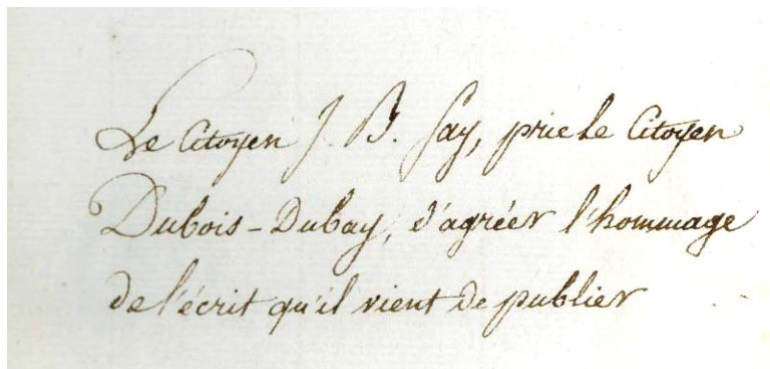 Le Citoyen J. B. Say, prie le Citoyen
Dubois-Dubay, d'agréer l'hommage
de l'écrit qu'il vient de publier